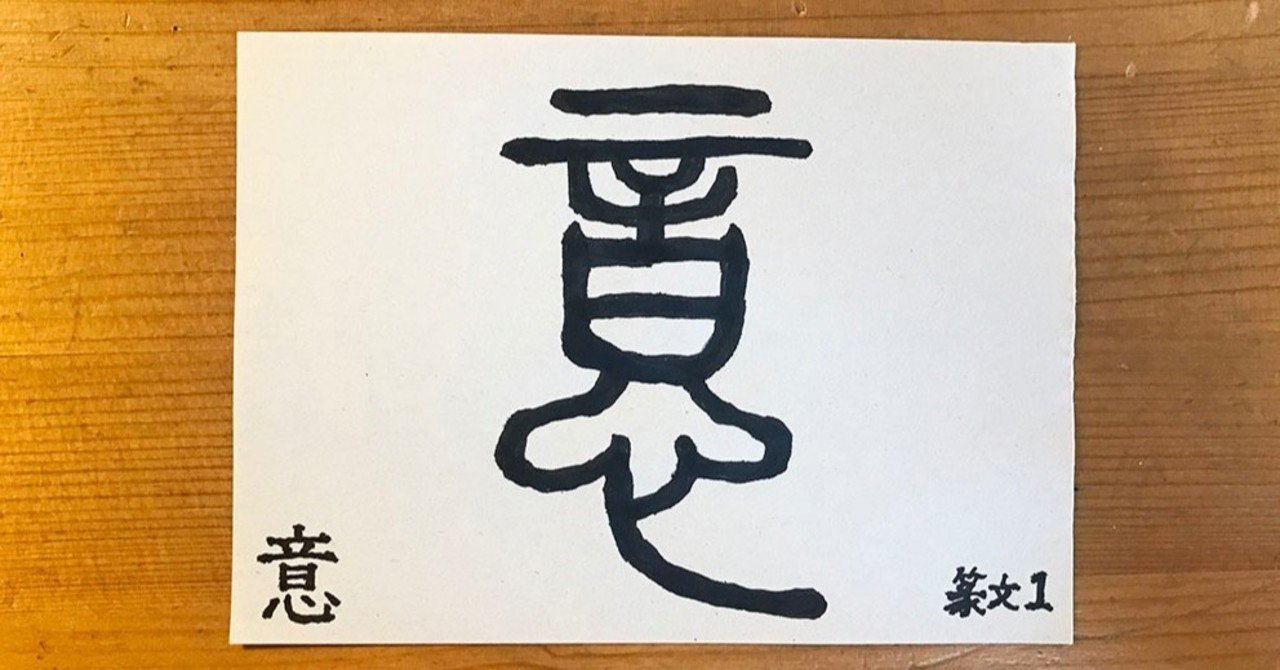 意
意
篆文1